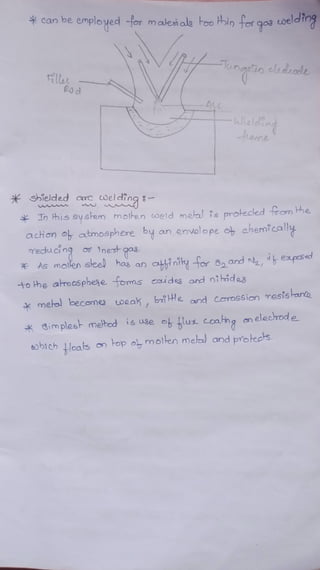 * can be employed for materials too thin for gas welding
Tungsten electrode
Filler
Rod
Arc
Wielding
flame
* Shielded arc welding :-
* In this system molten weld metal is protected from the
action of atmosphere by an envelope of chemically
reducing or inert gas.
* As molten steel has an affinity for O2 and N2, if exposed
to the atmosphere forms oxides and nitrides
* metal becomes weak, brittle and corossion resistance
* Simplest method is use of flux coating on electrode
which floats on top of molten metal and protects.